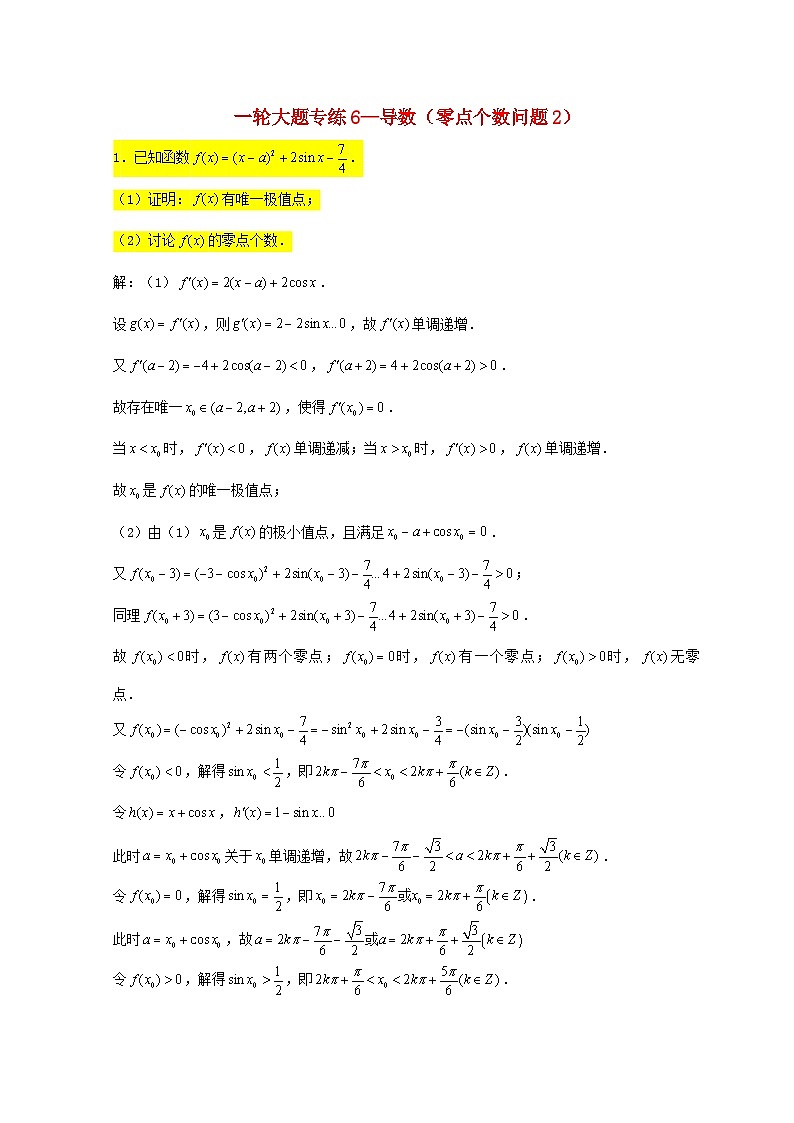 一轮大题专练6—导数（零点个数问题2）
1．已知函数 f(x)=(x−a)²+2sin x−7/4．
（1）证明：f(x)有唯一极值点；
（2）讨论f(x)的零点个数．
解：（1）f′(x)=2(x−a)+2cos x．
设g(x)=f′(x)，则g′(x)=2−2sin x...0，故f′(x)单调递增．
又f′(a−2)=−4+2cos(a−2)<0，f′(a+2)=4+2cos(a+2)>0．
故存在唯一x₀∈(a−2,a+2)，使得f′(x₀)=0．
当x<x₀时，f′(x)<0，f(x)单调递减；当x>x₀时，f′(x)>0，f(x)单调递增．
故x₀是f(x)的唯一极值点；
（2）由（1）x₀是f(x)的极小值点，且满足x₀−a+cos x₀=0．
又f(x₀−3)=(−3−cos x₀)²+2sin(x₀−3)−7/4...4+2sin(x₀−3)−7/4>0；
同理f(x₀+3)=(3−cos x₀)²+2sin(x₀+3)−7/4...4+2sin(x₀+3)−7/4>0．
故f(x₀)<0时，f(x)有两个零点；f(x₀)=0时，f(x)有一个零点；f(x₀)>0时，f(x)无零
点．
又f(x₀)=(−cos x₀)²+2sin x₀−7/4=−sin²x₀+2sin x₀−3/4=−(sin x₀−3/2)(sin x₀−1/2)
令f(x₀)<0，解得sin x₀<1/2，即2kπ−7π/6<x₀<2kπ+π/6(k∈Z)．
令h(x)=x+cos x，h′(x)=1−sin x...0
此时a=x₀+cos x₀关于x₀单调递增，故2kπ−7π/6−√3/2<a<2kπ+π/6+√3/2(k∈Z)．
令f(x₀)=0，解得sin x₀=1/2，即x₀=2kπ−7π/6或x₀=2kπ+π/6(k∈Z)．
此时a=x₀+cos x₀，故a=2kπ−7π/6−√3/2或a=2kπ+π/6+√3/2(k∈Z)
令f(x₀)>0，解得sin x₀>1/2，即2kπ+π/6<x₀<2kπ+5π/6(k∈Z)．